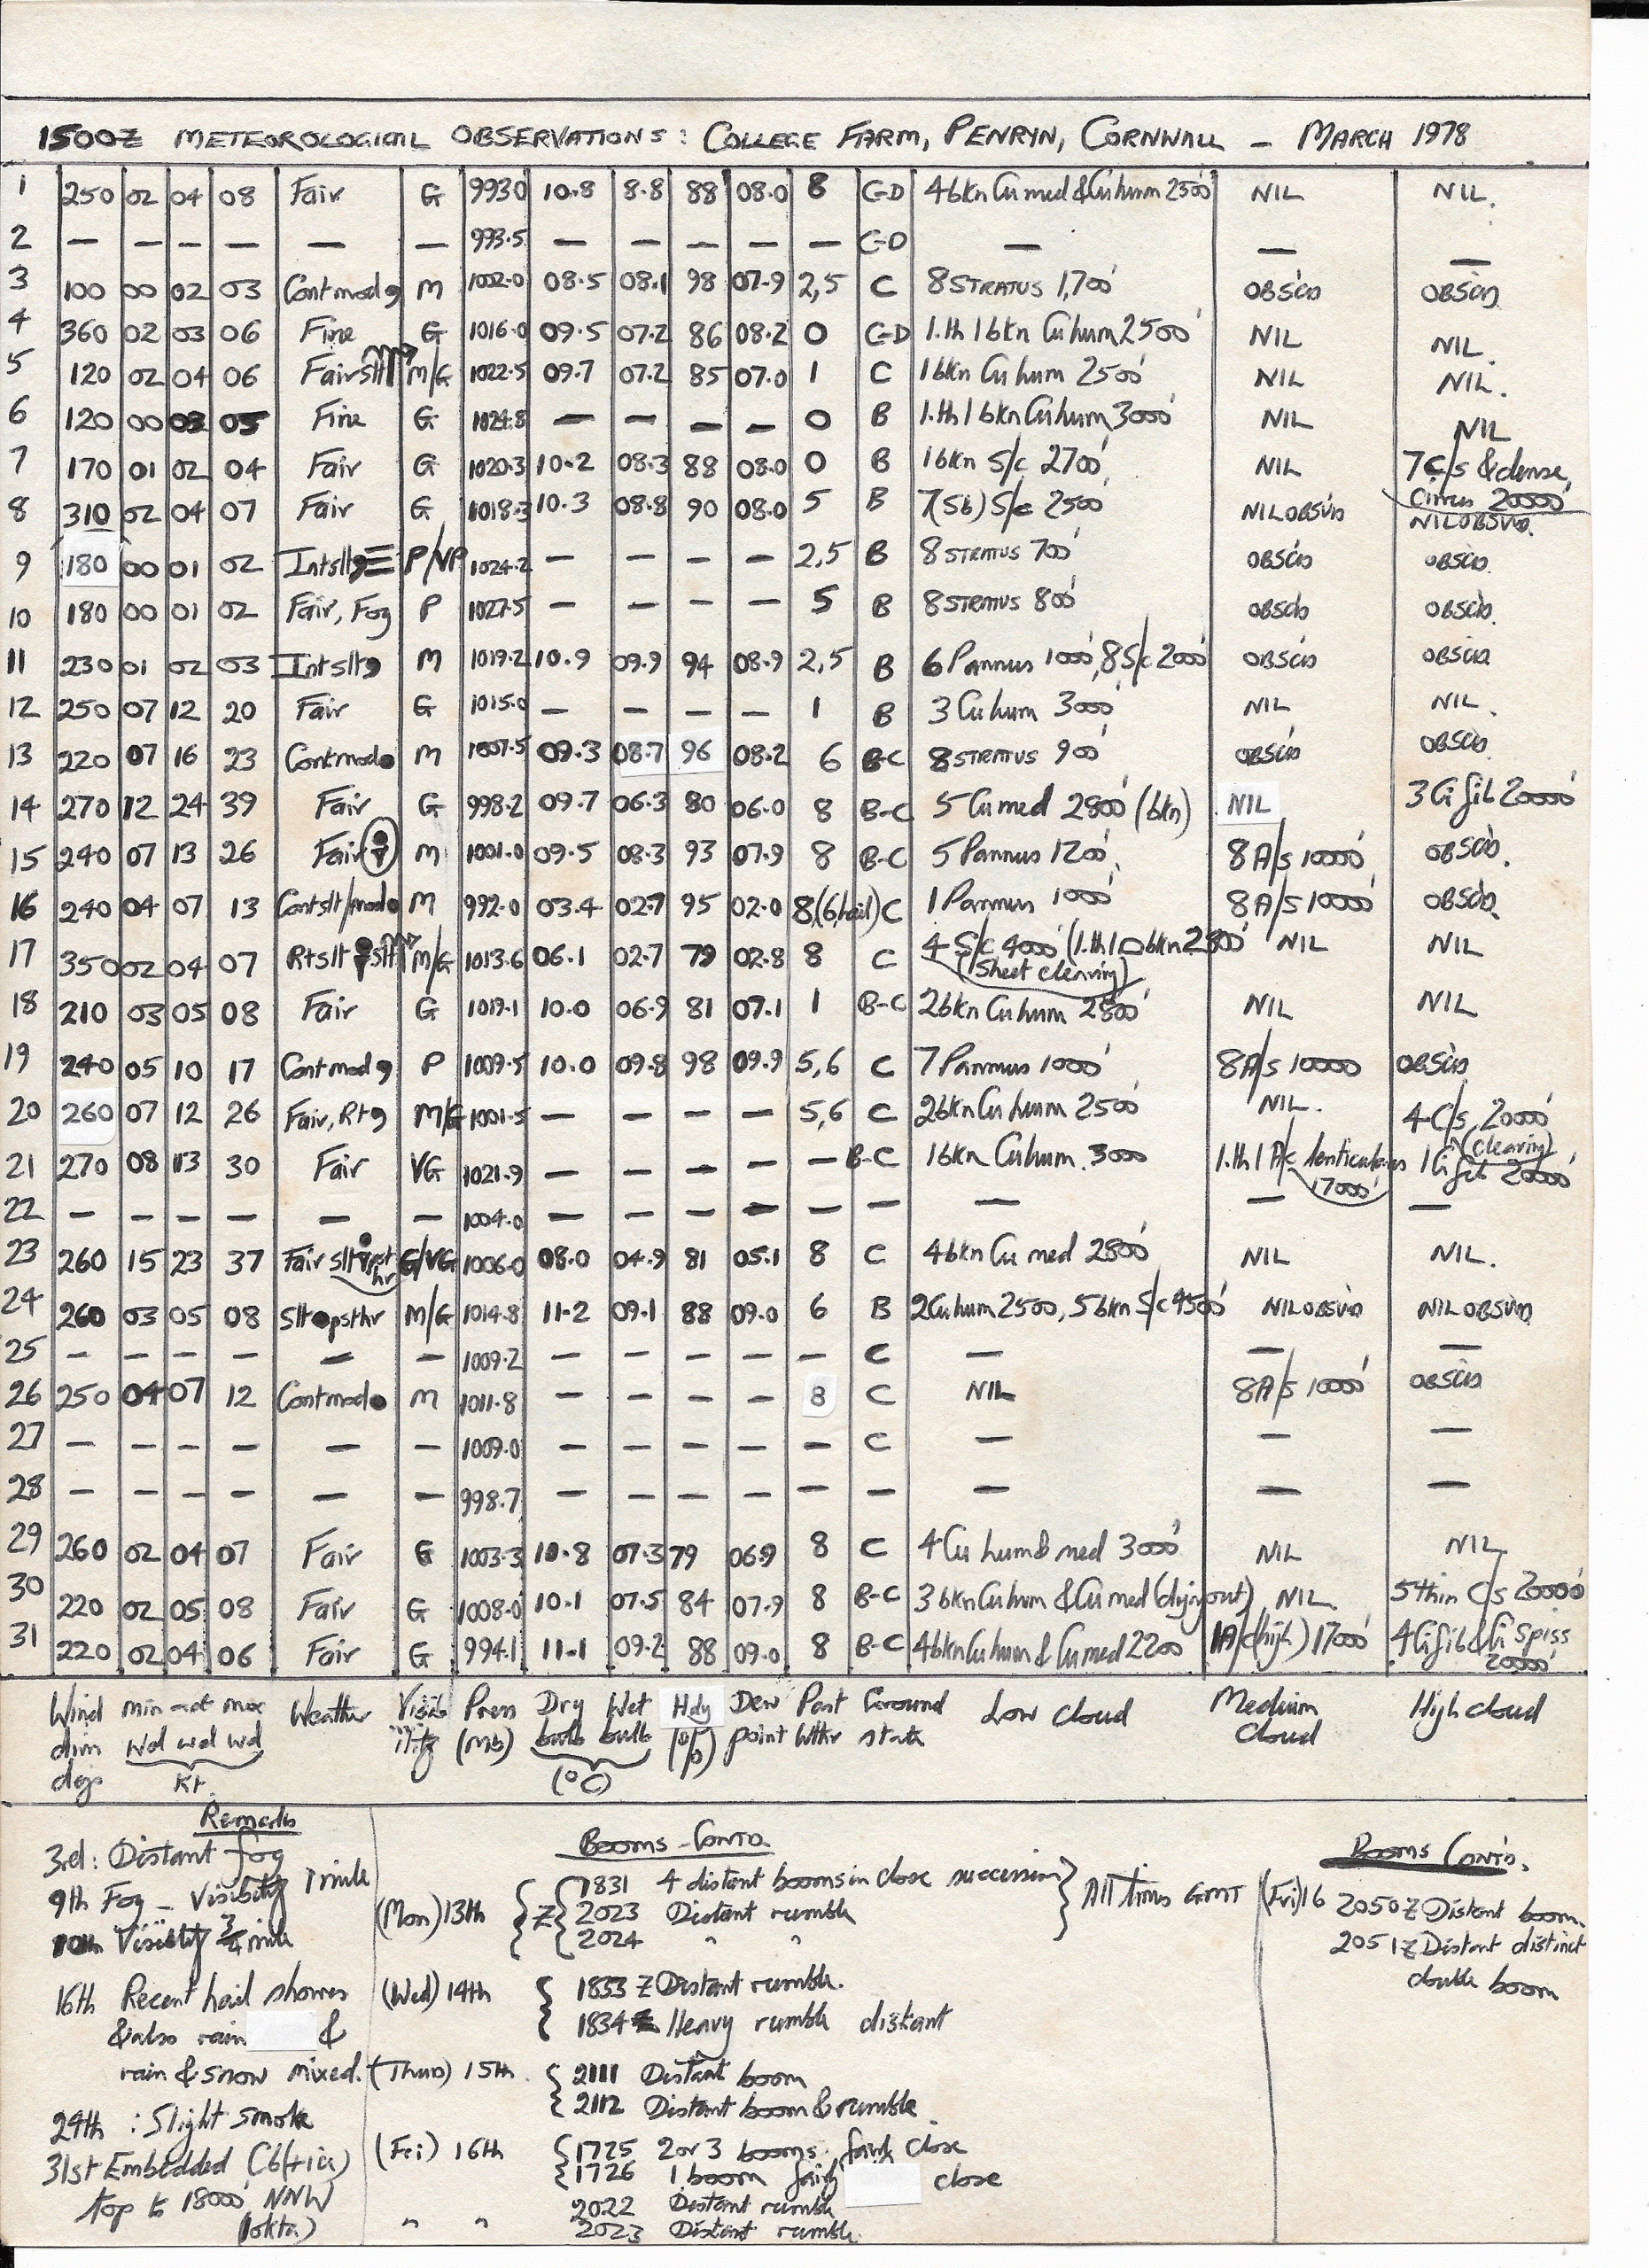 1500Z METEOROLOGICAL OBSERVATIONS: COLLEGE FARM, PENRYN, CORNWALL – MARCH 1978
1 250 02 04 08 Fair G 993.0 10.8 8.8 88 08.0 8 C-D 4 bkn Cu med & Cu hum 2500' NIL NIL.
2 — — — — — — 993.5 — — — — — C-D — — —
3 100 00 02 03 Contmod, M 1002.0 08.5 08.1 98 07.9 2,5 C 8 STRATUS 1,700' OBSCD OBSCD
4 360 02 03 06 Fine G 1016.0 09.5 07.2 86 08.2 0 C-D 1.th 1 bkn Cu hum 2500' NIL NIL.
5 120 02 04 06 Fair slt M/G 1022.5 09.7 07.2 85 07.0 1 C 1 bkn Cu hum 2500' NIL NIL.
6 120 00 03 05 Fine G 1024.8 — — — — 0 B 1.th 1 bkn Cu hum 3000' NIL NIL
7 170 01 02 04 Fair G 1020.3 10.2 08.3 88 08.0 0 B 1 bkn S/c 2700' NIL 7 C/s & dense, Cirrus 20000'
8 310 02 04 07 Fair G 1018.3 10.3 08.8 90 08.0 5 B 7(5b) S/c 2500' NIL OBSVD NIL OBSVD.
9 180 00 01 02 Intslt, ≡ P/VP 1024.2 — — — — 2,5 B 8 STRATUS 700' OBSCD OBSCD.
10 180 00 01 02 Fair, Fog P 1027.5 — — — — 5 B 8 STRATUS 800' OBSCD OBSCD.
11 230 01 02 03 Intslt, M 1019.2 10.9 09.9 94 08.9 2,5 B 6 Pannus 1000', 8 S/c 2000' OBSCD OBSCD
12 250 07 12 20 Fair G 1015.0 — — — — 1 B 3 Cu hum 3000' NIL NIL.
13 220 07 16 23 Contmod● M 1007.5 09.3 08.7 96 08.2 6 B-C 8 STRATUS 900' OBSCD OBSCD.
14 270 12 24 39 Fair G 998.2 09.7 06.3 80 06.0 8 B-C 5 Cu med 2800' (bkn) NIL 3 Ci fib 20000'
15 240 07 13 26 Fair M 1001.0 09.5 08.3 93 07.9 8 B-C 5 Pannus 1200' 8 A/s 10000' OBSCD.
16 240 04 07 13 Contslt/mod● M 992.0 03.4 02.7 95 02.0 8,(6,hail) C 1 Pannus 1000' 8 A/s 10000' OBSCD.
17 350 02 04 07 Rtslt slt M/G 1013.6 06.1 02.7 79 02.8 8 C 4 S/c 4000' (1.th 1 bkn 2800' NIL NIL
(Sheet clearing)
18 210 03 05 08 Fair G 1019.1 10.0 06.9 81 07.1 1 B-C 2 bkn Cu hum 2800' NIL NIL
19 240 05 10 17 Contmod, P 1009.5 10.0 09.8 98 09.9 5,6 C 7 Pannus 1000' 8 A/s 10000 OBSCD
20 260 07 12 26 Fair, Rt, M/G 1001.5 — — — — 5,6 C 2 bkn Cu hum 2500' NIL. 4 C/s 20000' (clearing)
21 270 08 13 30 Fair VG 1021.9 — — — — — B-C 1 bkn Cu hum. 3000 1.th 1 A/c lenticularis 17000' 1 Ci fib 20000'
22 — — — — — — 1004.0 — — — — — — — — —
23 260 15 23 37 Fair slt pst hr G/VG 1006.0 08.0 04.9 81 05.1 8 C 4 bkn Cu med 2800' NIL NIL.
24 260 03 05 08 Slt●psthr M/G 1014.8 11.2 09.1 88 09.0 6 B 2 Cu hum 2500, 5 bkn S/c 4500' NIL OBSVD NIL OBSVD
25 — — — — — — 1009.2 — — — — — C — — —
26 250 04 07 12 Contmod● M 1011.8 — — — — 8 C NIL 8 A/s 10000' OBSCD
27 — — — — — — 1009.0 — — — — — C — — —
28 — — — — — — 998.7 — — — — — — — — —
29 260 02 04 07 Fair G 1003.3 10.8 07.3 79 06.9 8 C 4 Cu hum & med 3000' NIL NIL
30 220 02 05 08 Fair G 1008.0 10.1 07.5 84 07.9 8 B-C 3 bkn Cu hum & Cu med (dying out) NIL. 5 thin C/s 20000'
31 220 02 04 06 Fair G 994.1 11.1 09.2 88 09.0 8 B-C 4 bkn Cu hum & Cu med 2200 1 A/c (high) 17000' 4 Ci fib & Ci Spiss 20000'
Wind min act max Weather Visib Press Dry Wet Hdy Dew Past Ground Low Cloud Medium High cloud
dirn wd wd wd ility (mb) bulb bulb (%) point Wthr state Cloud
degs Kt. (°C)
Remarks
3rd: Distant fog
9th Fog – Visibility 1 mile
10th Visibility 3/4 mile
16th Recent hail showers
& also rain &
rain & snow mixed.
24th : Slight smoke
31st Embedded Cb (+ ia)
top to 18000' NNW
(1 okta)
BOOMS – CONTD.
(Mon) 13th Z 1831 4 distant booms in close succession All times GMT
2023 Distant rumble
2024 " "
(Wed) 14th 1833 Z Distant rumble.
1834 Z Heavy rumble distant
(Thurs) 15th. 2111 Distant boom
2112 Distant boom & rumble.
(Fri) 16th 1725 2 or 3 booms. fairly close
1726 1 boom fairly close
2022 Distant rumble
" " 2023 Distant rumble.
BOOMS CONTD.
(Fri) 16 2050 Z Distant boom.
2051 Z Distant distinct
double boom